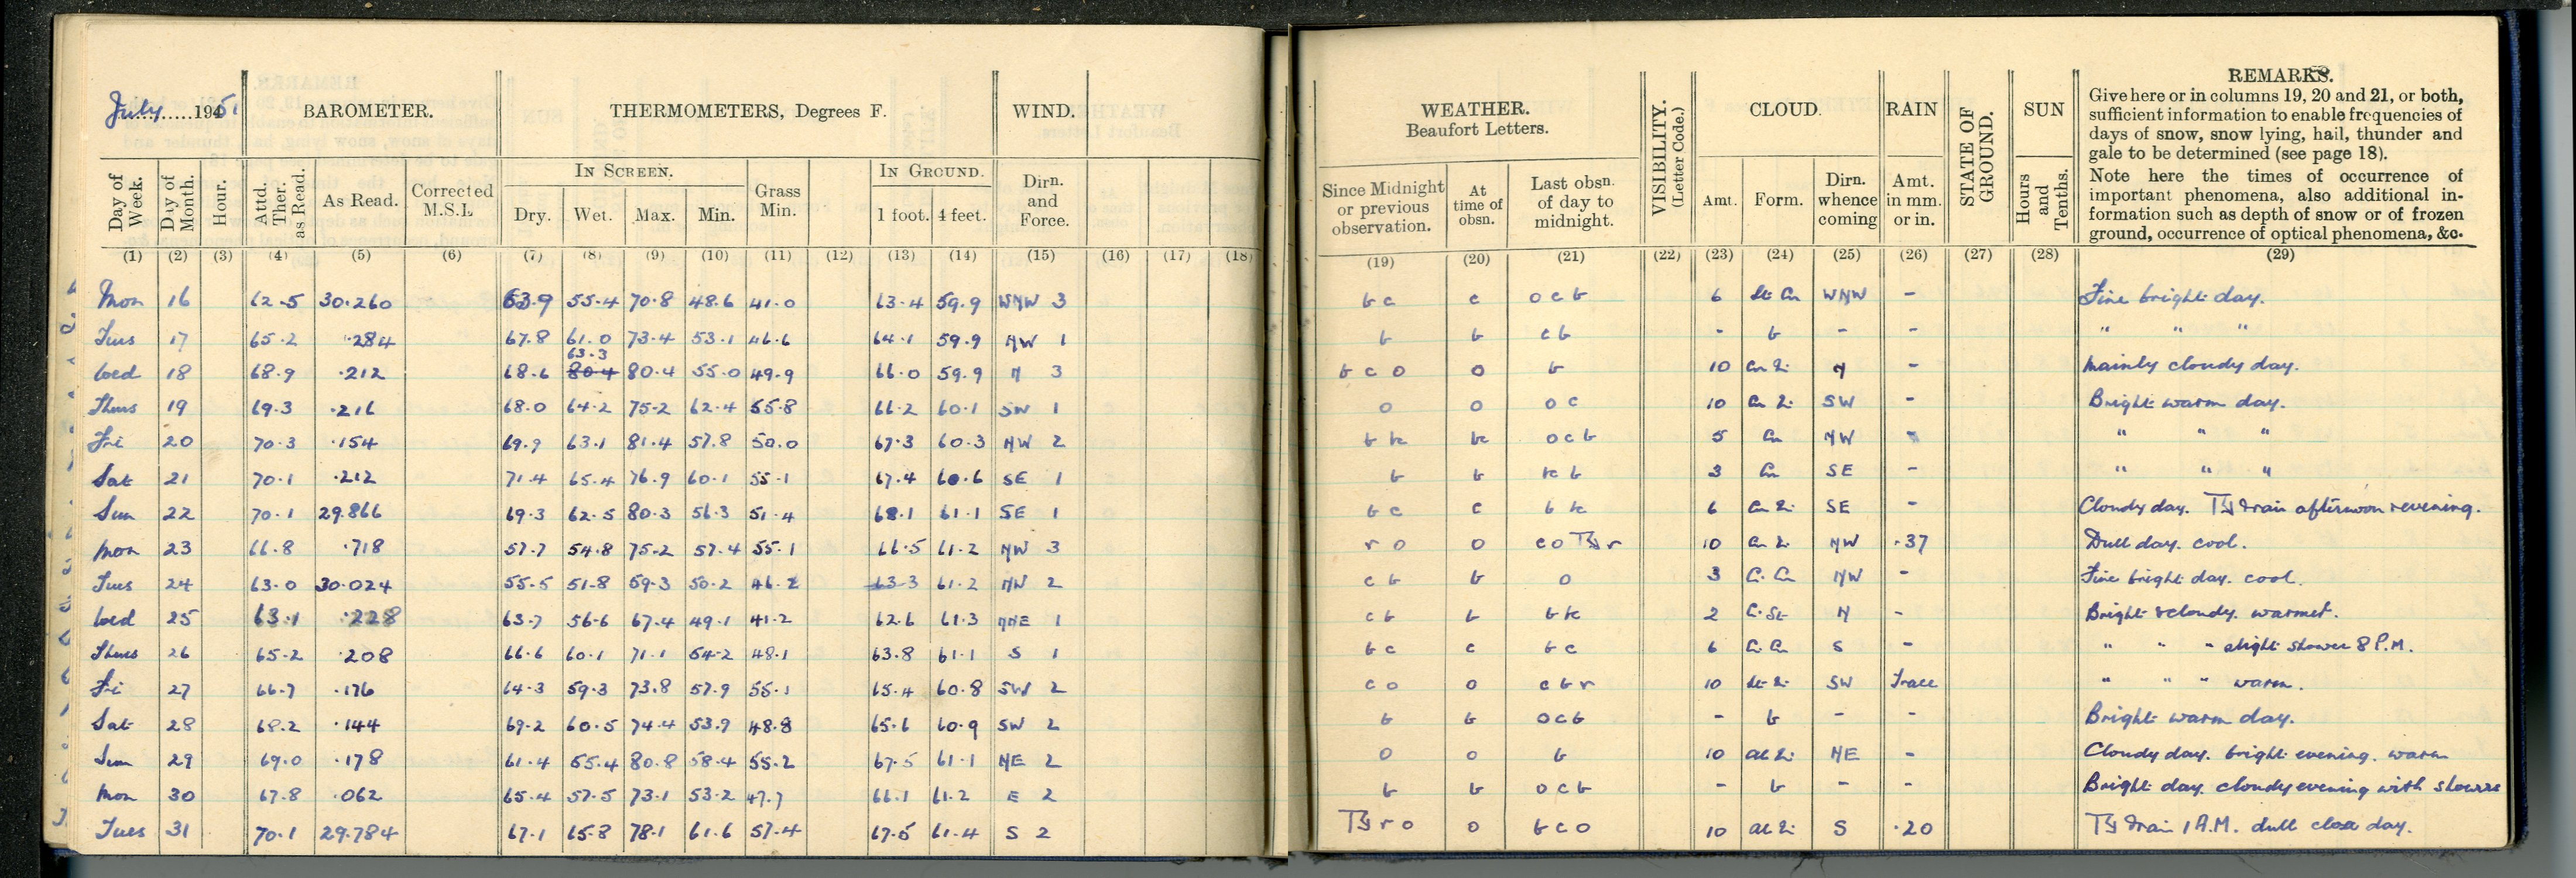 July 1951 BAROMETER. THERMOMETERS, Degrees F. WIND. WEATHER. Beaufort Letters. VISIBILITY. (Letter Code.) CLOUD. RAIN STATE OF GROUND. SUN REMARKS.
Give here or in columns 19, 20 and 21, or both,
sufficient information to enable frequencies of
days of snow, snow lying, hail, thunder and
gale to be determined (see page 18).
Note here the times of occurrence of
important phenomena, also additional in-
formation such as depth of snow or of frozen
ground, occurrence of optical phenomena, &c.
IN SCREEN. IN GROUND.
Day of Week. Day of Month. Hour. Attd. Ther. as Read. As Read. Corrected M.S.L. Dry. Wet. Max. Min. Grass Min. 1 foot. 4 feet. Dirn. and Force. Since Midnight or previous observation. At time of obsn. Last obsn. of day to midnight. Amt. Form. Dirn. whence coming Amt. in mm. or in. Hours and Tenths.
(1) (2) (3) (4) (5) (6) (7) (8) (9) (10) (11) (12) (13) (14) (15) (16) (17) (18) (19) (20) (21) (22) (23) (24) (25) (26) (27) (28) (29)
Mon 16 62.5 30.260 63.9 55.4 70.8 48.6 41.0 63.4 59.9 WNW 3 b c c o c b 6 St Cu WNW - Fine bright day.
Tues 17 65.2 .284 67.8 61.0 73.4 53.1 46.6 64.1 59.9 NW 1 b b c b - b - - " " "
63.3
Wed 18 68.9 .212 68.6 80.4 80.4 55.0 49.9 66.0 59.9 N 3 b c o o b 10 Cu Ni N - Mainly cloudy day.
Thurs 19 69.3 .216 68.0 64.2 75.2 62.4 55.8 66.2 60.1 SW 1 o o o c 10 Cu Ni SW - Bright warm day.
Fri 20 70.3 .154 69.9 63.1 81.4 57.8 50.0 67.3 60.3 NW 2 b bc bc o c b 5 Cu NW - " " "
Sat 21 70.1 .212 71.4 65.4 76.9 60.1 55.1 67.4 60.6 SE 1 b b bc b 3 Cu SE - " " "
Sun 22 70.1 29.866 69.3 62.5 80.3 56.3 51.4 68.1 61.1 SE 1 b c c b bc 6 Cu Ni SE - Cloudy day. & rain afternoon & evening.
Mon 23 66.8 .718 57.7 54.8 75.2 57.4 55.1 66.5 61.2 NW 3 r o o c o r 10 Cu Ni NW .37 Dull day. cool.
Tues 24 63.0 30.024 55.5 51.8 59.3 50.2 46.2 63.3 61.2 NW 2 c b b o 3 Ci. Cu NW - Fine bright day. cool.
Wed 25 63.1 .228 63.7 56.6 67.4 49.1 41.2 62.6 61.3 NNE 1 c b b b bc 2 Ci. St N - Bright & cloudy. warmer.
Thurs 26 65.2 .208 66.6 60.1 71.1 54.2 48.1 63.8 61.1 S 1 b c c b c 6 Ci. Cu S - " " " slight shower 8 P.M.
Fri 27 66.7 .176 64.3 59.3 73.8 57.9 55.1 65.4 60.8 SW 2 c o o c b r 10 St Ni SW Trace " " " warm.
Sat 28 68.2 .144 69.2 60.5 74.4 53.9 48.8 65.6 60.9 SW 2 b b o c b - b - - Bright warm day.
Sun 29 69.0 .178 61.4 55.4 80.8 58.4 55.2 67.5 61.1 NE 2 o o b 10 Al Ni NE - Cloudy day. bright evening. warm
Mon 30 67.8 .062 65.4 57.5 73.1 53.2 47.7 66.1 61.2 E 2 b b o c b - b - - Bright day. cloudy evening with showers
Tues 31 70.1 29.784 67.1 65.8 78.1 61.6 57.4 67.5 61.4 S 2 r o o b c o 10 Al Ni S .20 & rain 1 A.M. dull close day.